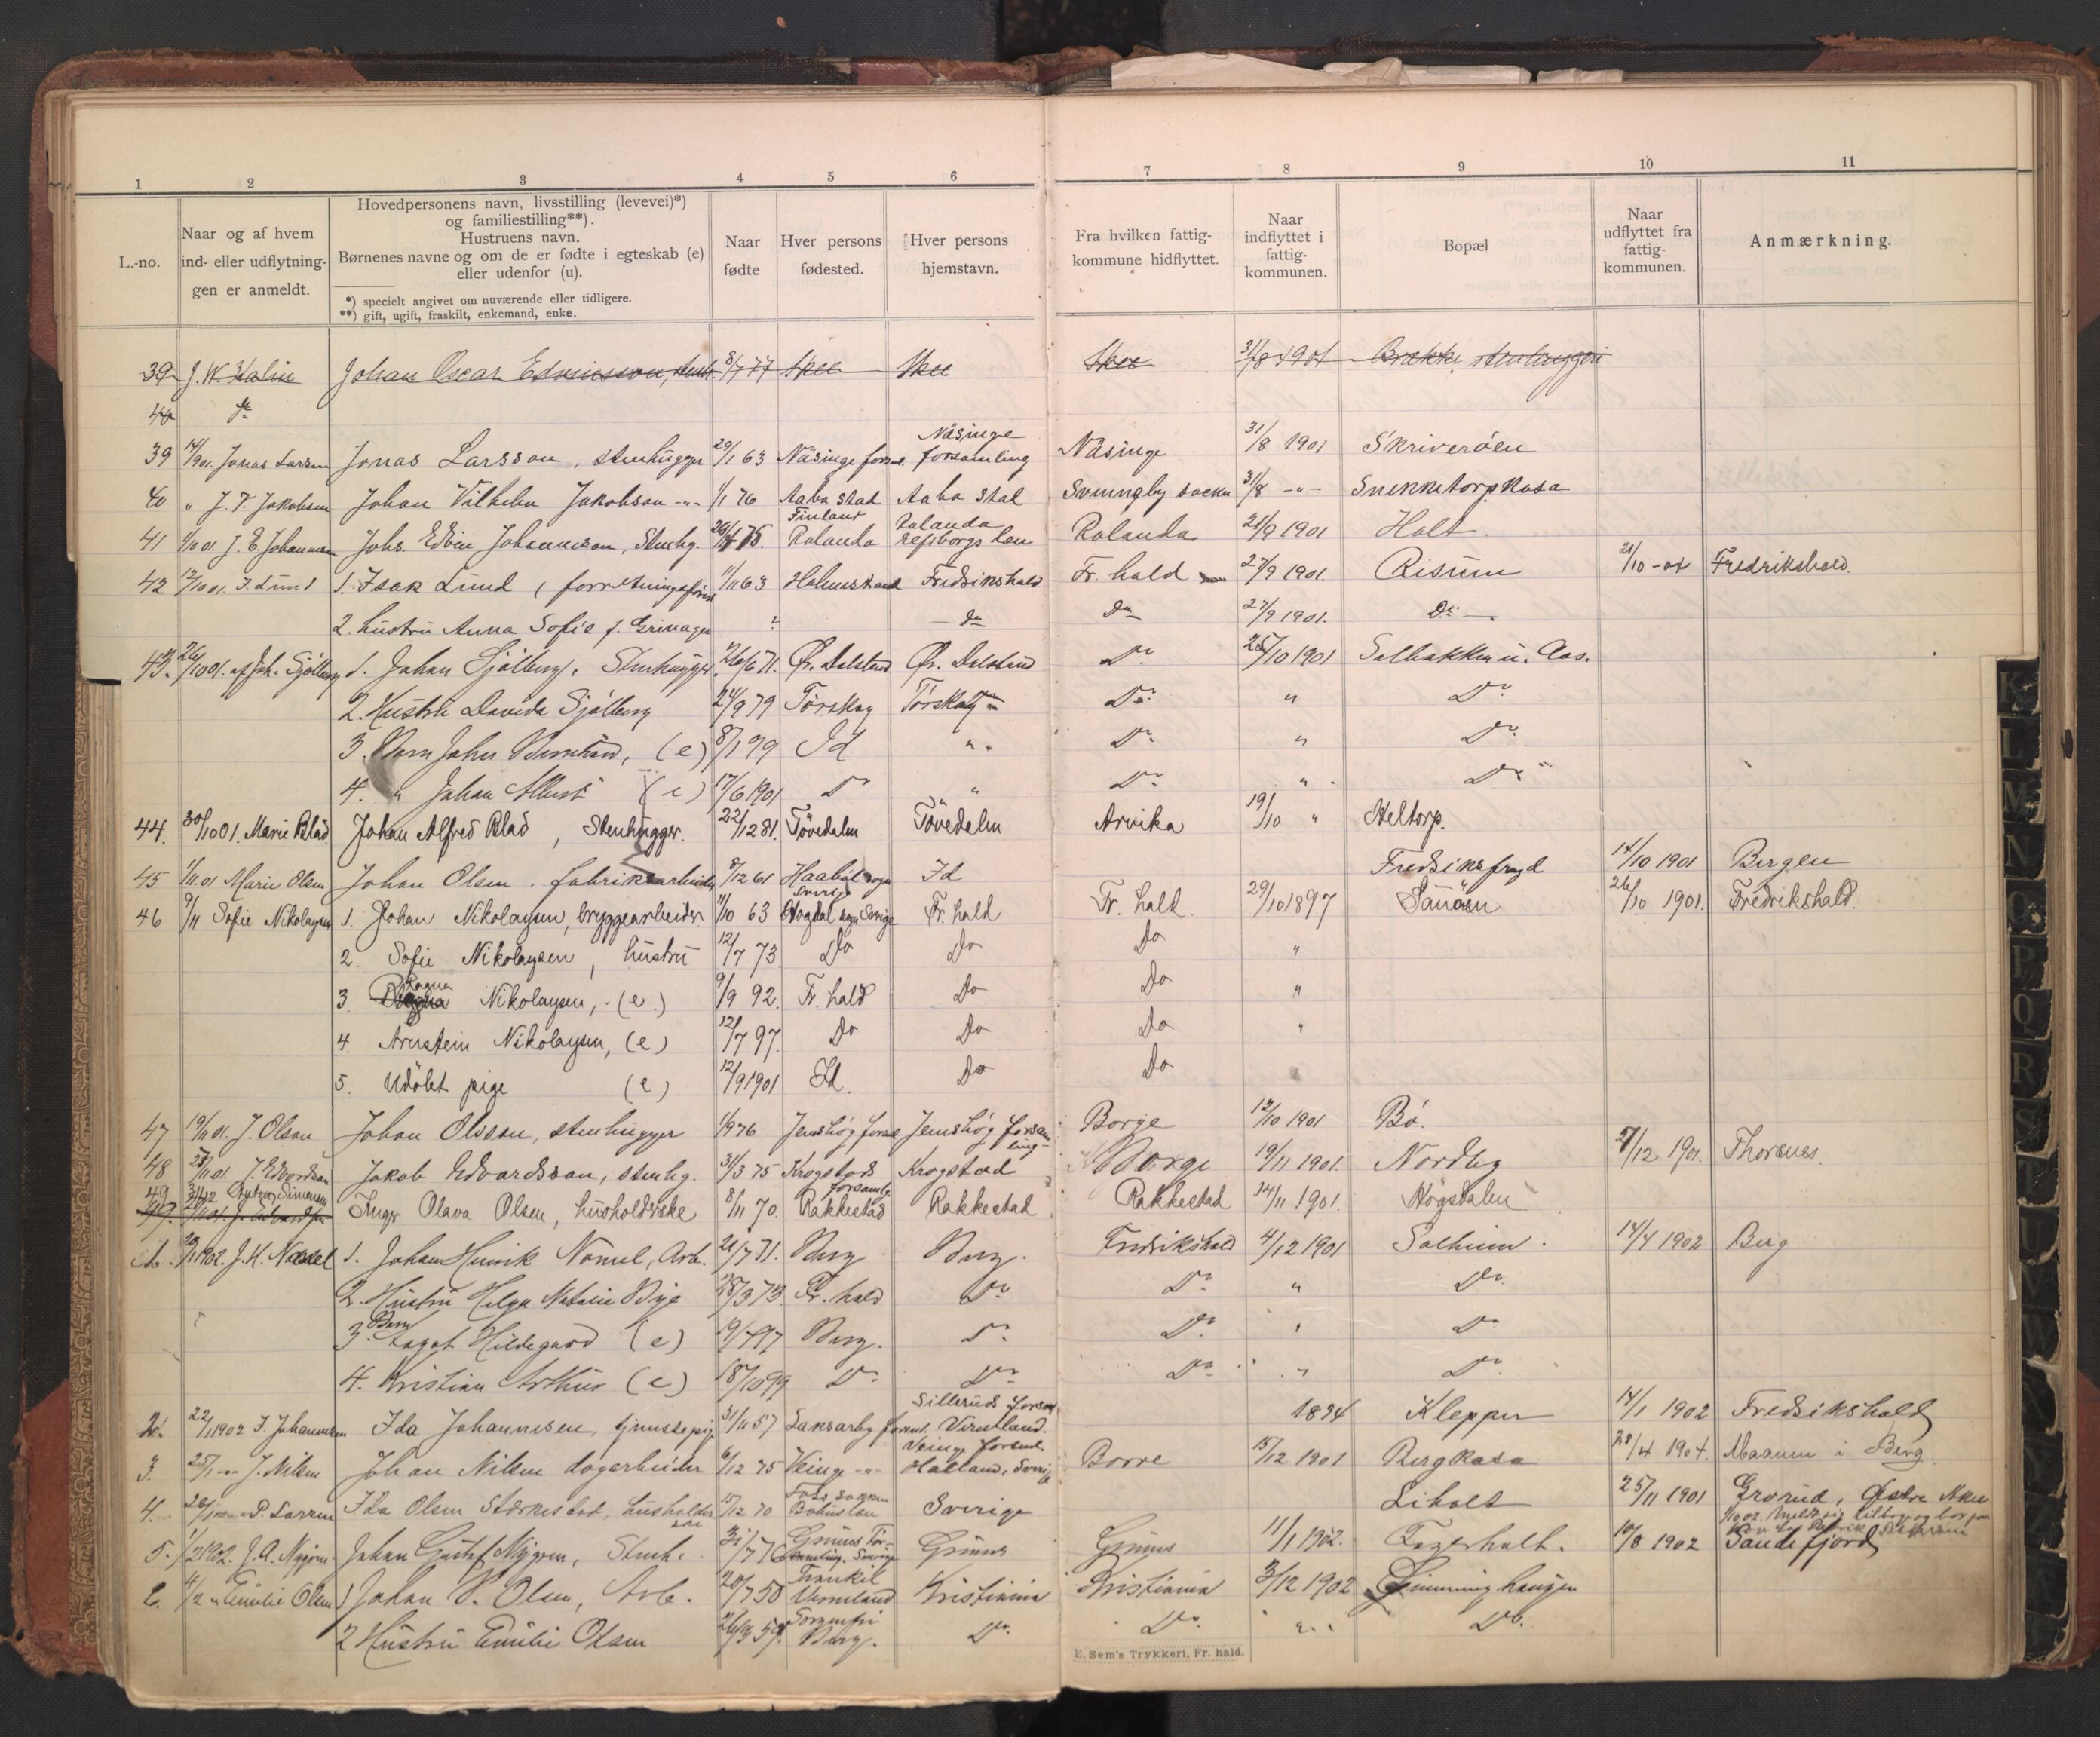 1 2 3 4 5 6 7 8 9 10 11
L.-no.
Naar og af hvem ind- eller udflytningen er anmeldt.
Hovedpersonens navn, livsstilling (levevei)*) og familiestilling**).
Hustruens navn.
Børnenes navne og om de er fødte i egteskab (e) eller udenfor (u).
*) specielt angivet om nuværende eller tidligere.
**) gift, ugift, fraskilt, enkemand, enke.
Naar fødte
Hver persons fødested.
Hver persons hjemstavn.
Fra hvilken fattigkommune hidflyttet.
Naar indflyttet i fattigkommunen.
Bopæl
Naar udflyttet fra fattigkommunen.
Anmærkning.
39 J. W. Kalin Johan Oscar 8/7 77 Skee Skee Skee 31/8 1901 Brække stenhuggeri
40 do
39 14/9 01. Jonas Larsson Jonas Larsson, stenhugger 29/1 63 Näsinge forsml. Näsinge forsamling Näsinge 31/8 1901 Skriverøen
40 " J. V. Jakobson Johan Vilhelm Jakobson -"- 1/1 76 Aabo stad Finland Aabo stad socken 31/8 -"- Snekketorpkasa
41 1/10 01. J. E. Johannesson Johs. Edvin Johannesson, Stenhg. Rolanda Rolanda Elfsborgs len Rolanda 21/9 1901 Holt.
42 12/10 01. I. Lund 1. Isak Lund, forretningsfører 11/11 63 Holmestrand Fredrikshald Fr. hald 27/9 1901. Risum 21/10 - 01 Fredrikshald.
2. hustru Anna Sofie f. Grinager ? do Do 27/9 1901. Do
43. 26/10 01. af Joh. Sjölberg 1. Johan Sjölberg, Stenhugger. 26/6 71. Ør. Dalsland Ør. Dalsland Do 25/10 1901 Solbakken u. Aas.
2. Hustru Davida Sjölberg 24/9 79 Törskog Törskog Do " Do
3. Barn John Bernhard, (e) 8/1 99 Id " Do " Do
4. " Johan Albert (e) 17/6 1901 Do " Do " Do
44. 30/10 01. Marie Blad Johan Alfred Blad, Stenhugger. 22/12 81. Tövedalen Tövedalen Arvika 19/10 " Heltorp.
45 1/11 01 Marie Olsen Johan Olsen, fabriksarbeider 8/12 61 Haabøl sogn Sverige Id Fredriksfryd 14/10 1901 Bergen
46 9/11 Sofie Nikolaysen 1. Johan Nikolaysen, bryggearbeider 11/10 63 Hogdal sogn Sverige Fr. hald Fr. hald. 29/10 1897 Sanøen 26/10 1901. Fredrikshald.
2. Sofie Nikolaysen, hustru 12/7 73 Do Do Do "
3 Ragna Nikolaysen, (e.) 9/9 92. Fr. hald Do Do "
4. Arnstein Nikolaysen, (e) 12/7 97. Do Do Do "
5. Udøbt pige (e) 12/9 1901 Id. Do Do
47 19/11 01. J. Olson Johan Olsson, stenhugger 1/9 76 Jemshög forsml Jemshög forsamling Borge 12/10 1901 Bø.
48 27/11 01. J Edvardsson Jakob Edvardsson, stenhg. 31/3 75 Krogstads forsamlg. Krogstad Borge 19/11 1901. Nordby 27/12 1901. Thorsnes.
49 Simensen Inger Olava Olsen, husholderske 8/11 70. Rakkestad Rakkestad Rakkestad 14/11 1901. Högsdalen
1. 1902. J. H. 1. Johan Henrik, Arb. 21/7 71. Berg Berg. Fredrikshald 4/12 1901 Solheim. 14/4 1902 Berg
2. Hustru Helga Natalie Bye 28/3 73. Fr. hald Do Do " Do
3. Barn Hildegard (e) Berg. Do Do " Do
4. Kristian Arthur (e) 18/10 99 Do Do Do " Do
2. 22/1 1902 I. Johannesen Ida Johannesen, tjenestepige 31/11 57 forsml. Sillerud forsml. Vermland. 1894 Klepper 14/1 1902 Fredrikshald
3. 25/1 -"- J. Nilsen Johan Nilsen dagarbeider 6/12 75 Veinge -"- Veinge forsml. Halland, Sverige Borre 15/12 1901 Bergkasa 28/4 1904 Maanen i Berg
4. 28/1 -"- P. Larsen Ida Olsen Stærkestad, husholderske 15/12 70 Foss sokken Bohuslen Sverige Liholt 25/11 1901 Grorud, Østre Aker
5. 1/2 1902. J. A. Nygren Johan Gustaf Nygren, Stenh. Grinns Forsamling. Sverige Grinns Grinns 11/1 1902. Fagerholt. 10/8 1902 Sandefjord
6. 4/2 " Emilie Olsen 1 Johan V. Olsen, Arb. 20/7 50 Vermland Kristiania Kristiania 3/12 1902
2 Hustru Emilie Olsen Berg. Do Do " Do
E. Sem's Trykkeri, Fr. hald.
K
L
M
N
O
P
Q
R
S
T
U
V
W